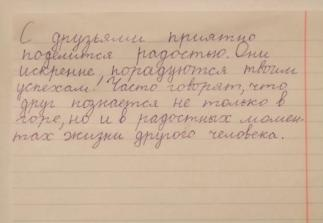 С друзьями приятно
поделится радостью. Они
искренне порадуются твоим
успехам! Часто говорят, что
друг познается не только в
горе, но и в радостных момен-
тах жизни другого человека.